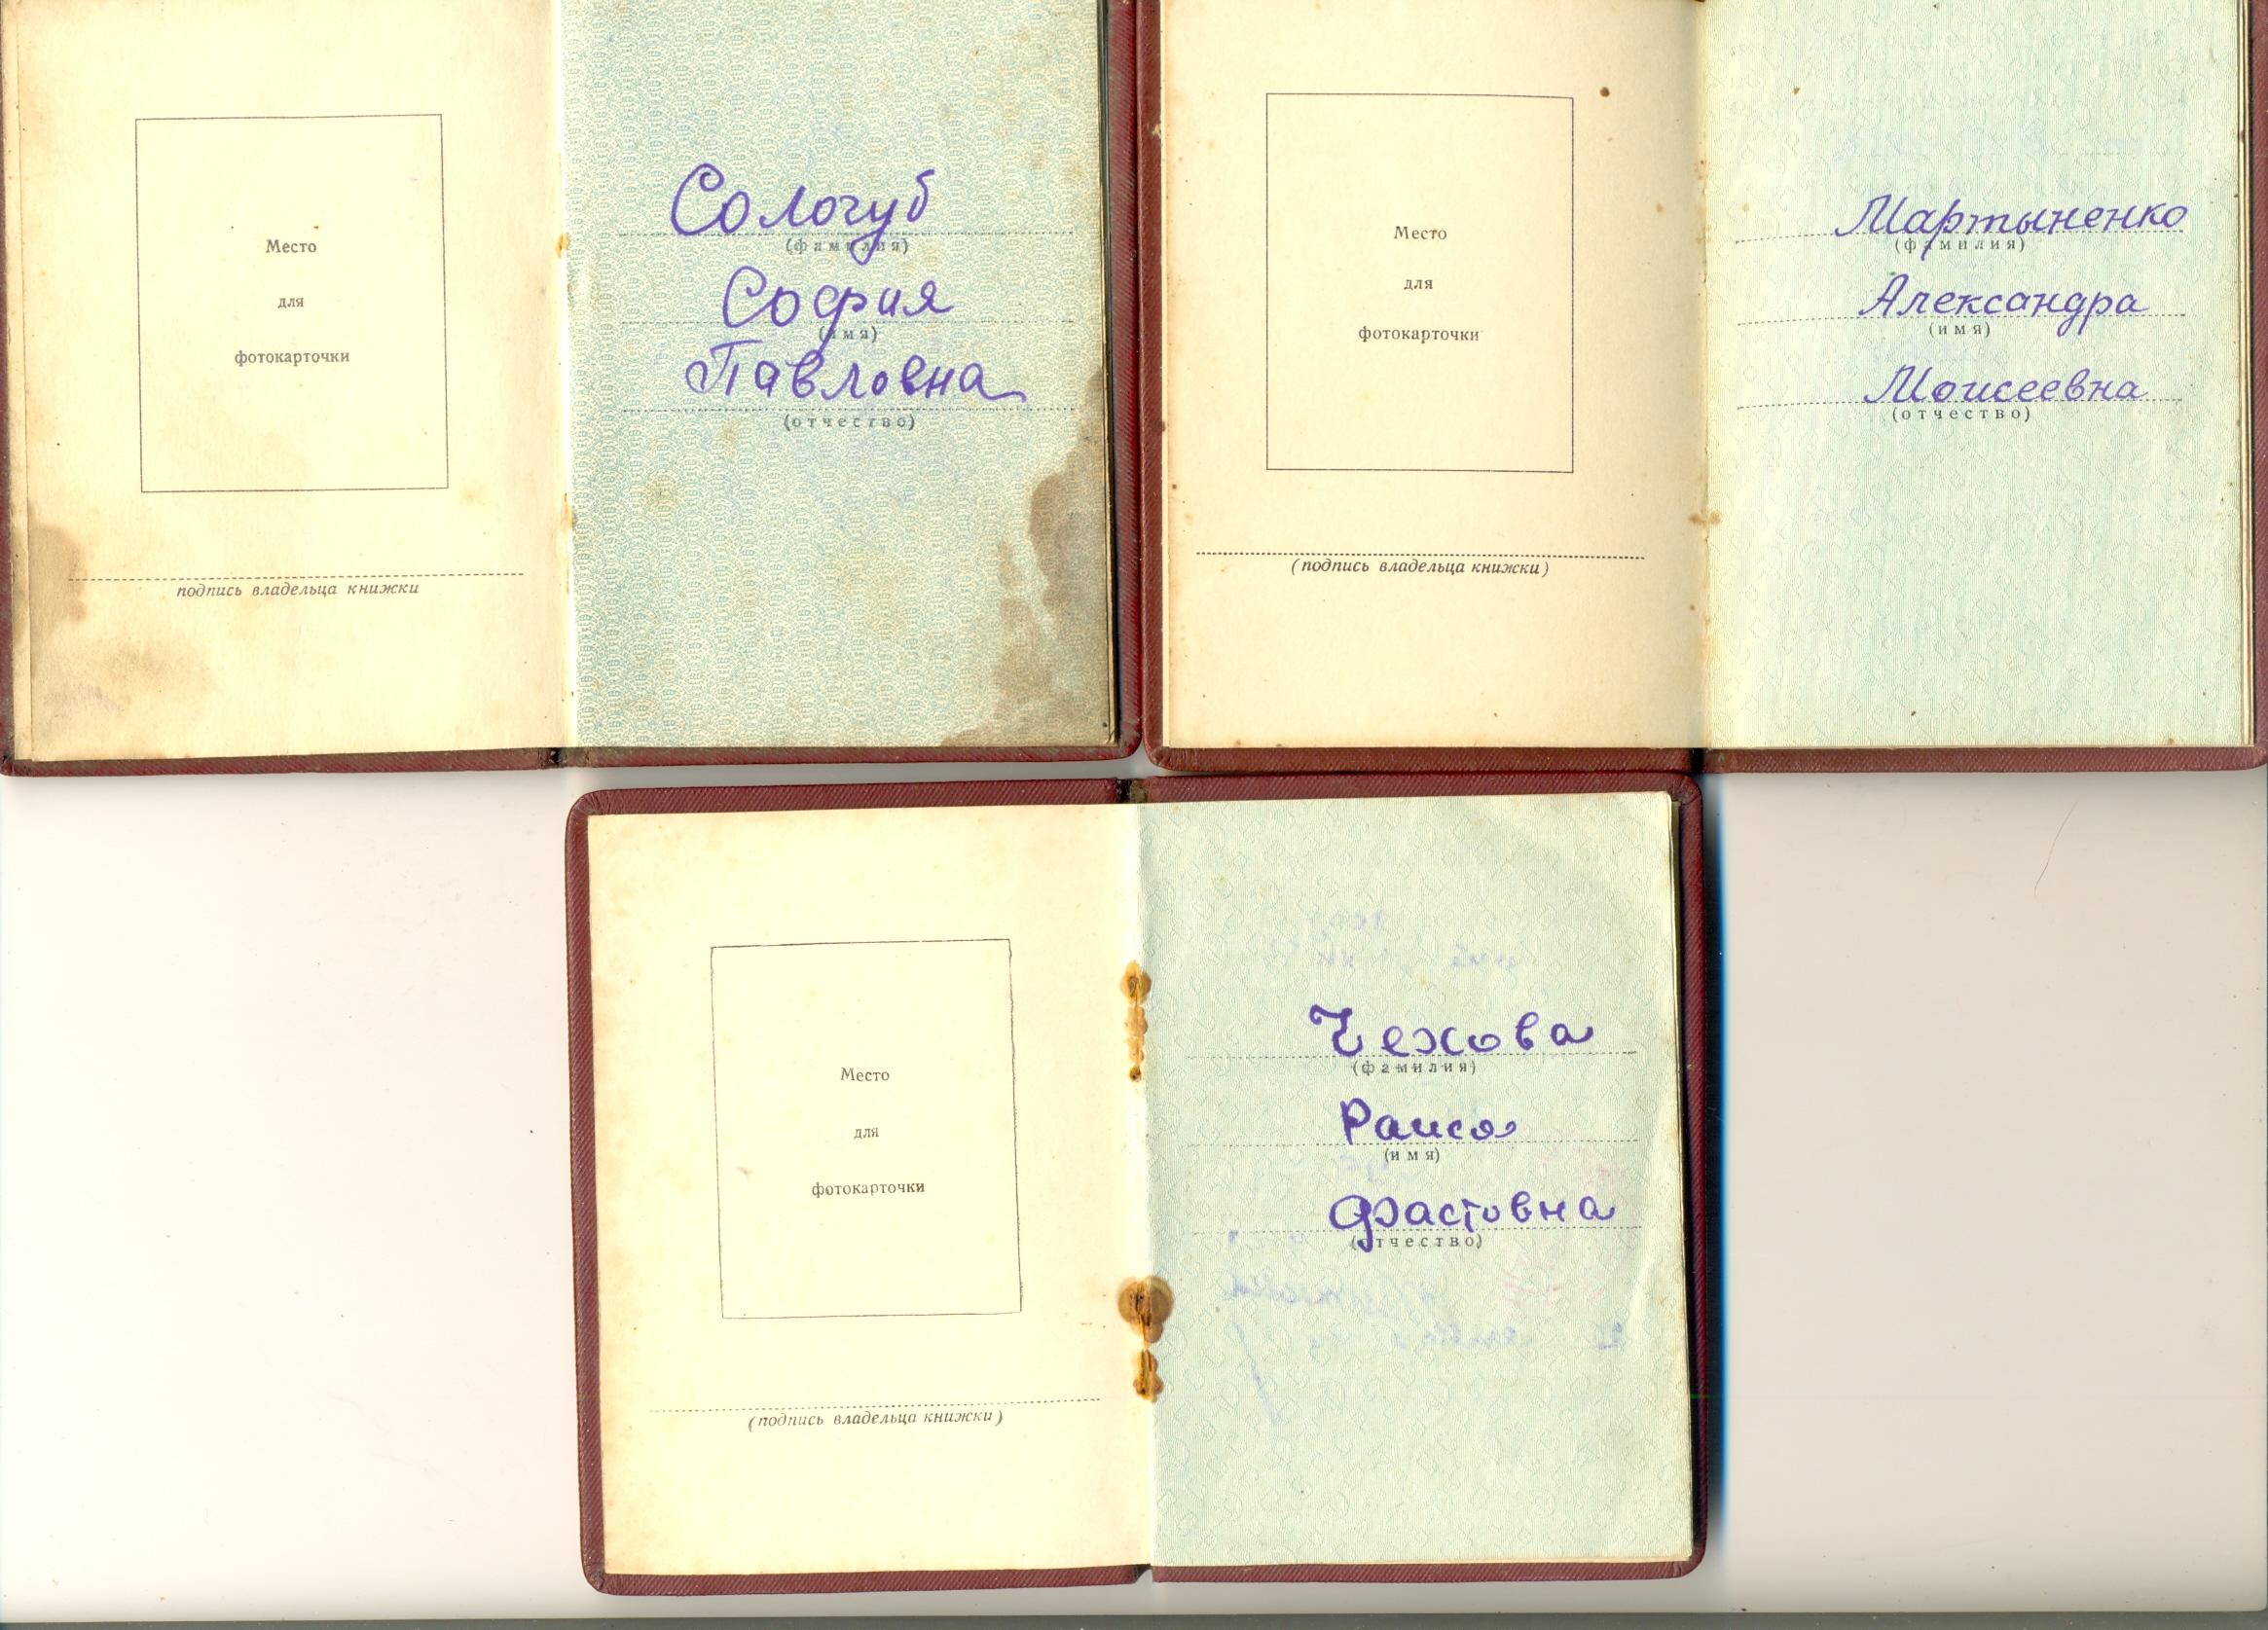 Место
для
фотокарточки
подпись владельца книжки
Сологуб
(фамилия)
София
(имя)
Павловна
(отчество)
Место
для
фотокарточки
(подпись владельца книжки)
Мартыненко
(фамилия)
Александра
(имя)
Моисеевна
(отчество)
Место
для
фотокарточки
(подпись владельца книжки)
Чехова
(фамилия)
Раиса
(имя)
Фастовна
(отчество)